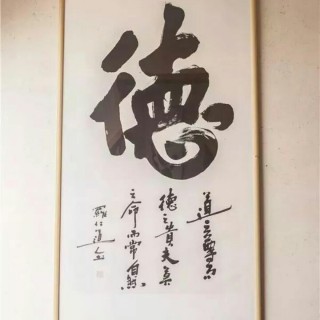 德
道之尊
德之貴夫莫
之命而常自然